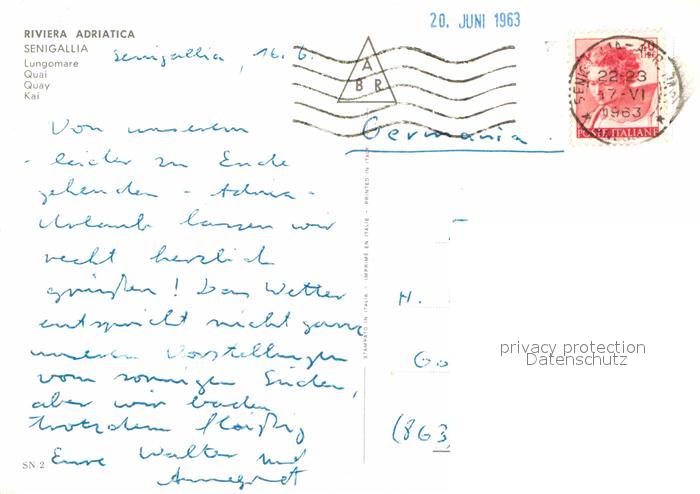 RIVIERA ADRIATICA
SENIGALLIA
Lungomare
Quai
Quay
Kai
Senigallia, 16. 6.
Von unserem
- leider zu Ende
gehenden - Adria -
Urlaub lassen wir
recht herzlich
grüßen! Das Wetter
entspricht nicht ganz
unseren Vorstellungen
vom sonnigen Süden,
aber wir baden
trotzdem fleißig
Eure Walter und
Annegret
SN. 2
20. JUNI 1963
A
B R
22-23
17-VI
1963
POSTE ITALIANE
Germania
STAMPATO IN ITALIA - IMPRIMÉ EN ITALIE - PRINTED IN ITALY
H.
Go
(863
privacy protection
Datenschutz